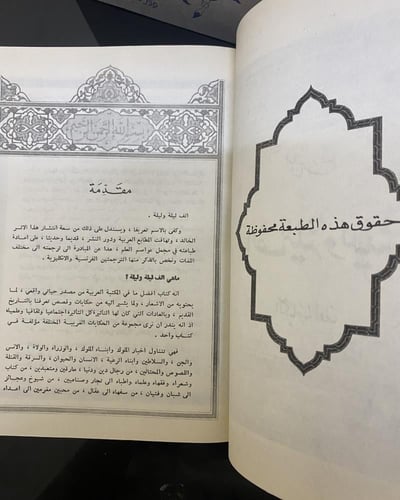 حقوق هذه الطبعة محفوظة
بسم الله الرحمن الرحيم
مقدمة
الف ليلة وليلة .
وكفى بالاسم تعريفا ، ويستدل على ذلك من سعة انتشار هذا الاثر
الخالد ، وتهافت المطابع العربية ودور النشر ، قديما وحديثا ، على اعادة
طباعته في مجمل عواصم العلم ، هذا عن المبادرة الى ترجمته الى مختلف
اللغات ونخص بالذكر منها الترجمتين الفرنسية والانكليزية .
ماهي الف ليلة وليلة ؟
انه كتاب افضل ما في المكتبة العربية من مصدر حياتي واقعي ، لما
يحتويه من الاشعار ، ولما يشير اليه من حكايات وقصص تعرفنا بالتاريخ
القديم ، وبالعادات التي كان لها التأثير اجتماعيا وثقافيا وعلمياء
اذ انه يندر ان نرى مجموعة من الحكايات العربية المختلفة مؤلفة في
كتاب واحد .
فهي تتناول اخبار الملوك وابناء الملوك ، والوزراء والولاة ، والانس
والجن ، والسلاطين وابناء الرعية ، الانسان والحيوان ، والسرقة والقتلة
واللصوص والمحتالين ، من رجال دين ودنيا ، مارقين ومتعبدين ، من كتاب
وشعراء وفقهاء وعلماء واطباء الى تجار وصناعيين ، من شيوخ وعجائز
الى شبان وفتيان ، من سفهاء الى عقال ، من محبين مغرمين الى اعداء